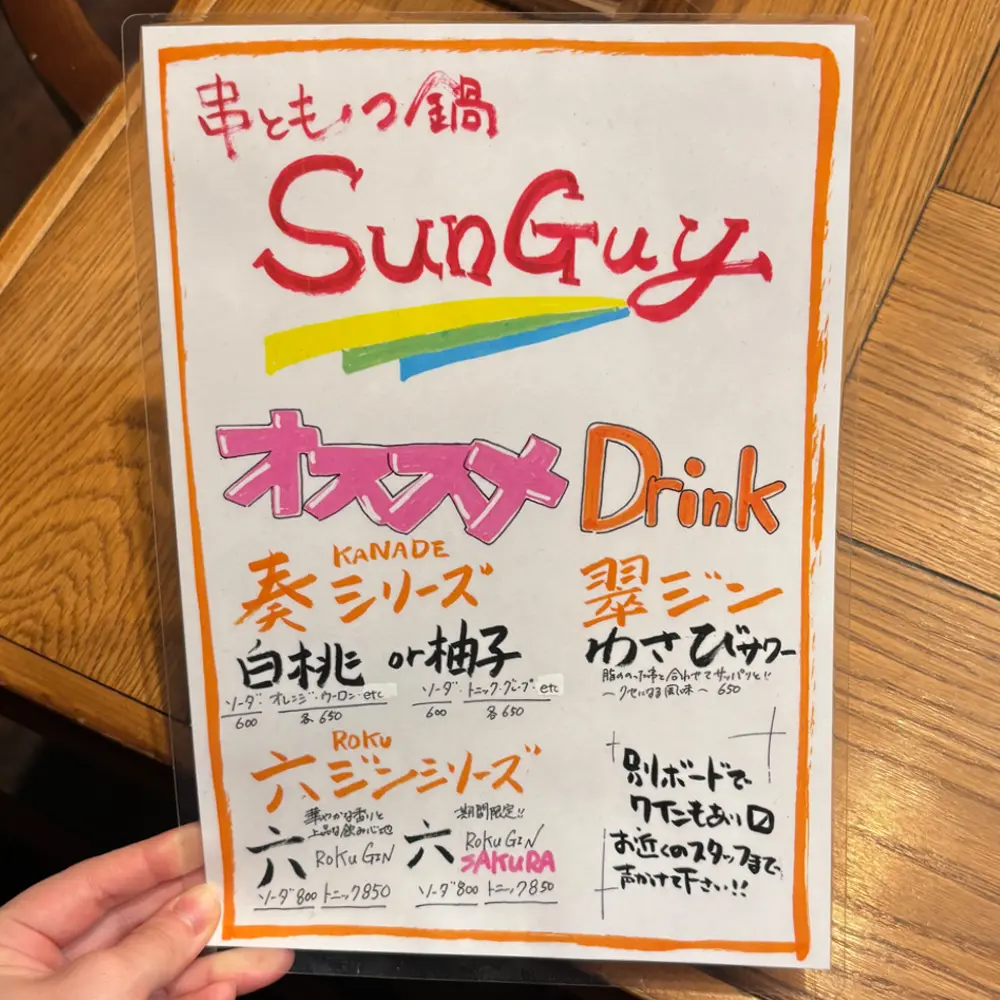 串ともつ鍋
SunGuy
オススメ Drink
奏 KANADE シリーズ
白桃 or 柚子
ソーダ・オレンジ・ウーロン・etc
600 各650
ソーダ・トニック・グレープ・etc
600 各650
翠ジン
わさびサワー
脂ののった串と合わせてサッパリと!!
〜クセになる風味〜 650
ROKU
六ジンシリーズ
華やかな香りと
上品な飲み心地
六 ROKU GIN
ソーダ800 トニック850
期間限定!!
六 ROKU GIN
SAKURA
ソーダ800 トニック850
別ボードで
ワインもあり〼
お近くのスタッフまで、
声かけて下さい!!